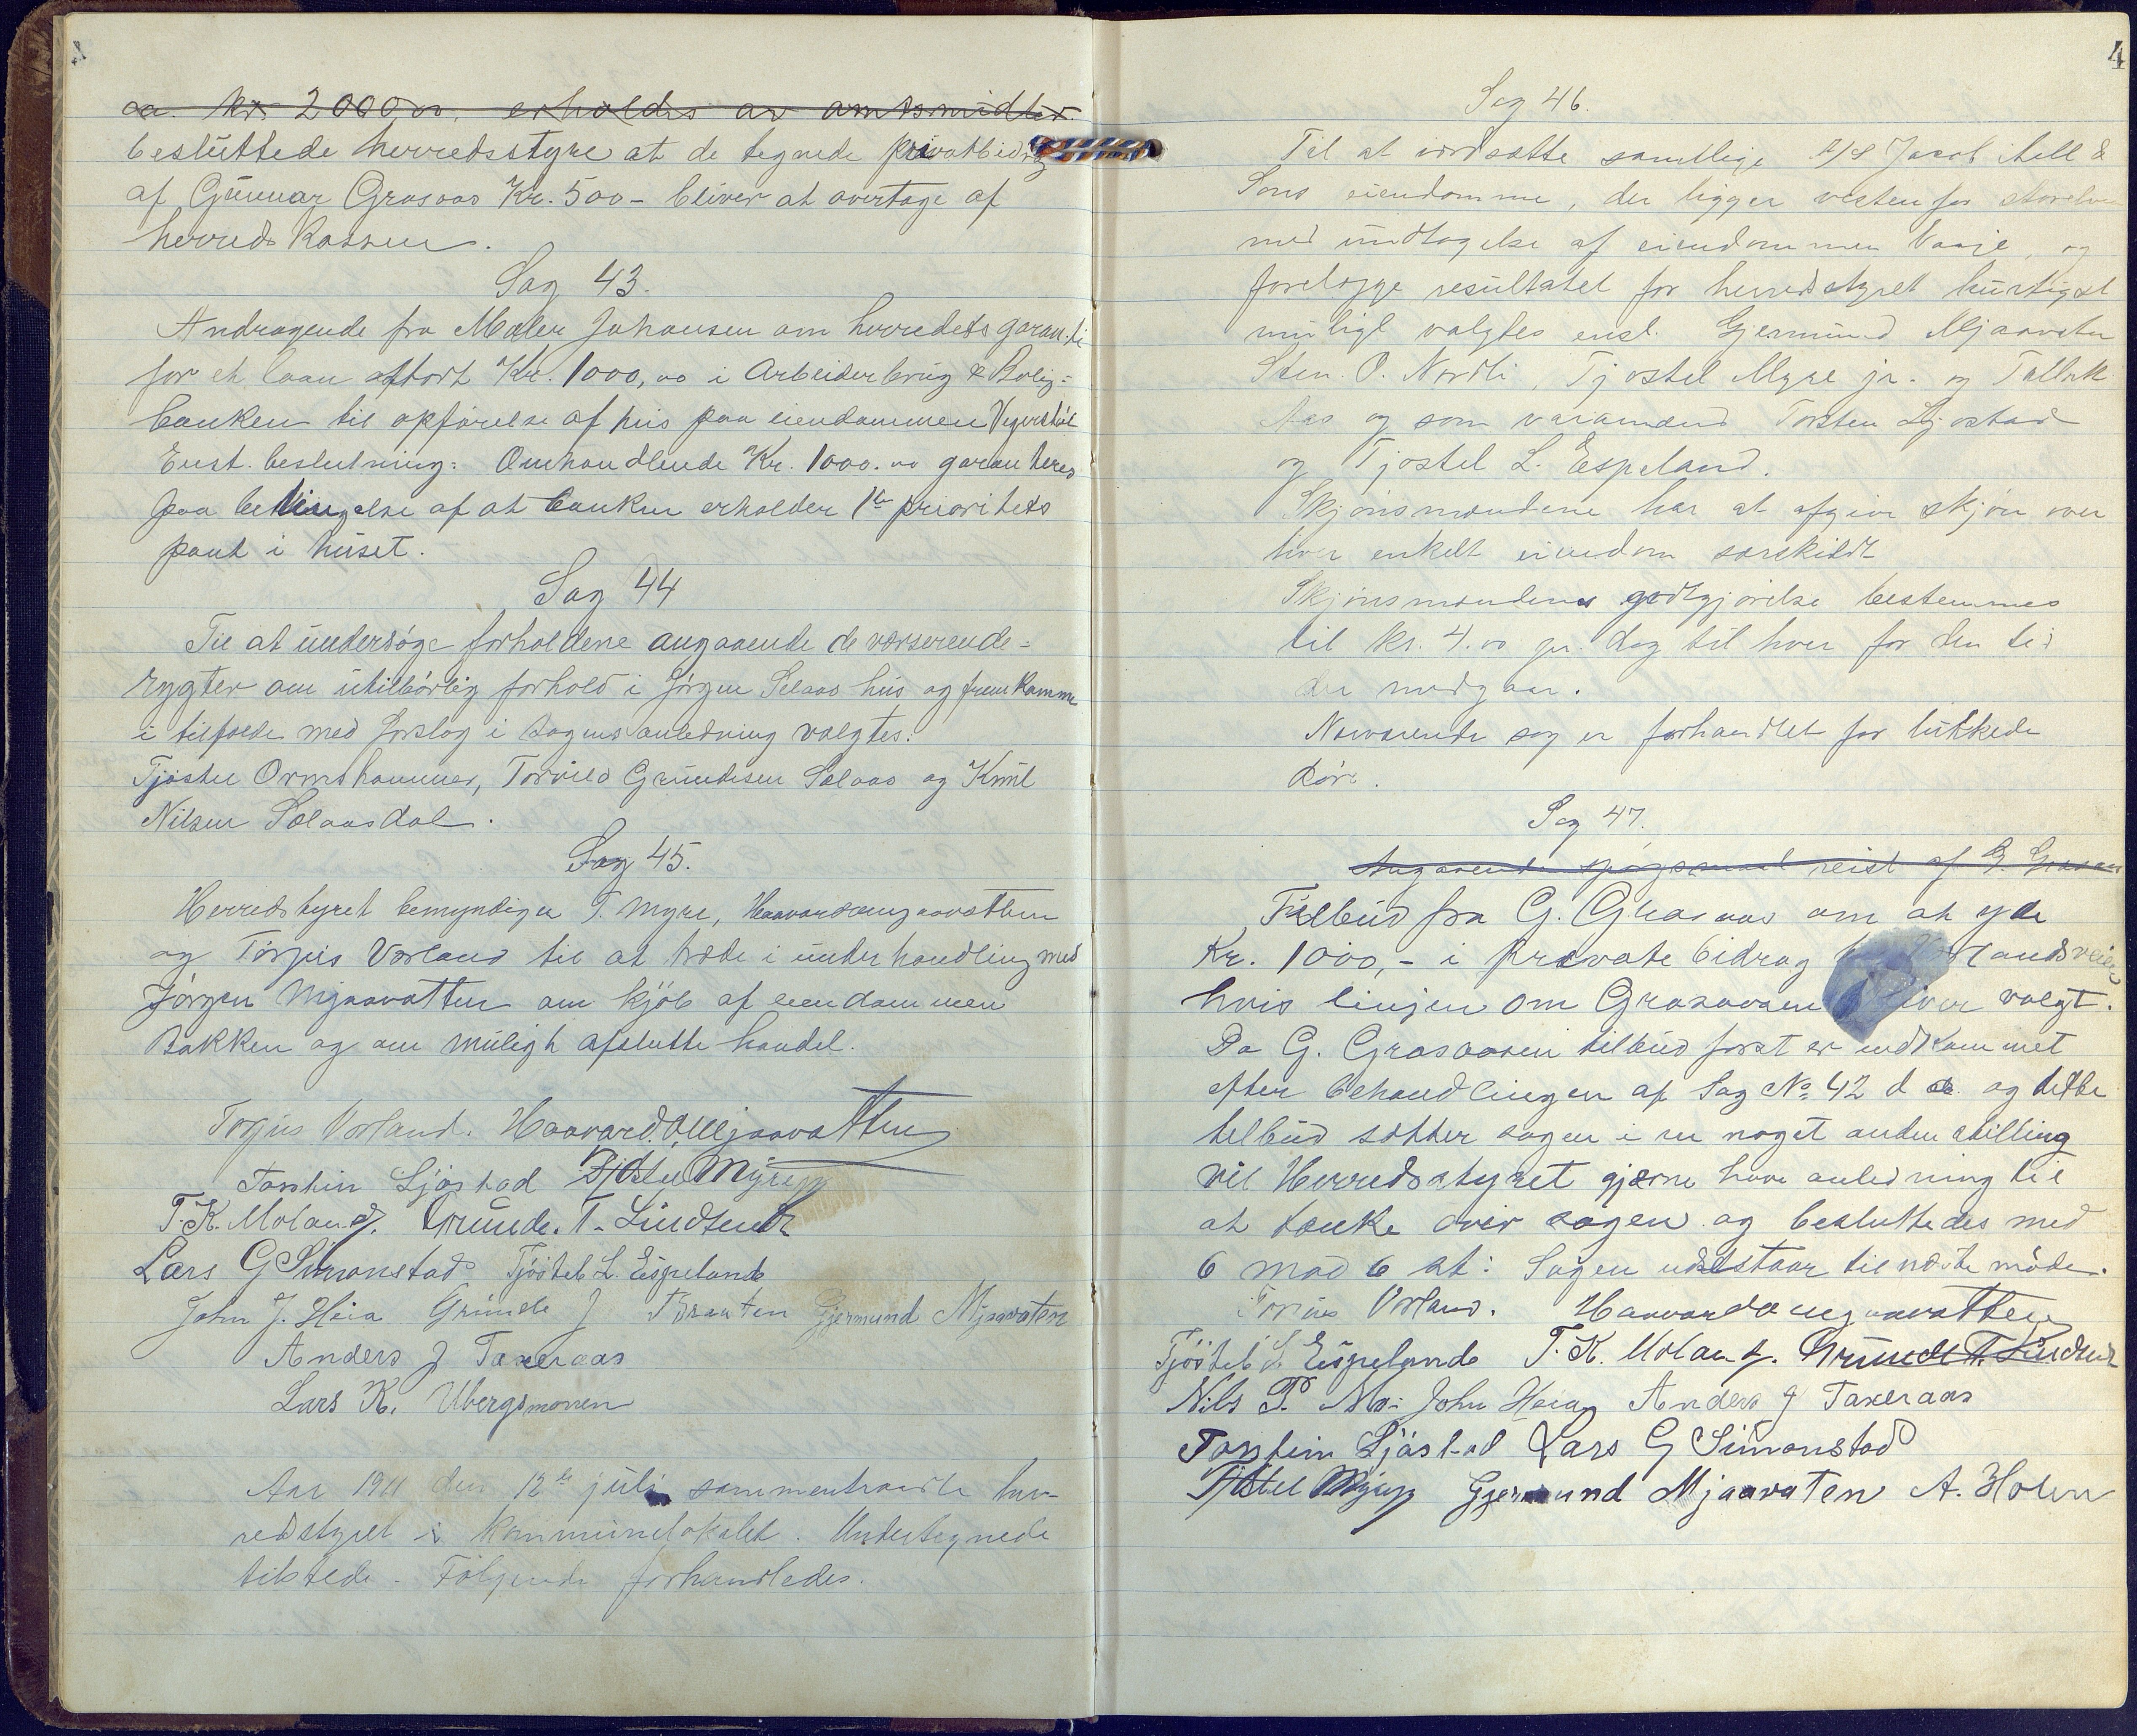 ca. kr. 2000,00. erholdes av amtsmidler.
besluttede herredsstyre at de tegnede privatbidrag
af Gunnar Grasaas Kr. 500- bliver at overtage af
herredskassen.
Sag 43.
Andragende fra Maler Johansen om herredets garanti
for et laan stort Kr. 1000,00 i Arbeiderbrug & Bolig-
banken til opførelse af hus paa eiendommen
Enst. beslutning: Omhandlende Kr. 1000.00 garanteres
paa betingelse af at banken erholder 1ste prioritets
pant i huset.
Sag 44
Til at undersøge forholdene angaaende de
rygter om utilbørlig forhold i Jørgen Selaas hus og fremkomme
i tilfælde med forslag i sagens anledning valgtes:
Tjøstel Ormshammer, Torvild Grundesen Selaas og Knut
Nilsen Selaasdal.
Sag 45.
Herredstyret bemyndiger T. Myre, Haavard Mjaavatten
og Torjus Vorland til at træde i underhandling med
Jørgen Mjaavatten om kjøb af eiendommen
Bakken og om muligt afslutte handel.
Torjus Vorland. Haavard O Mjaavatten
Torstein Ljøstad Tjøstel Myre jr
T. K. Moland. Grunde. T. Lindtveit
Lars G Simonstad Tjøstel L. Espelande
John J. Heia Grunde J Braaten Gjermund Mjaavaten
Anders J Taxeraas
Lars K. Ubergsmoen
Aar 1911 den 12te juli sammentraadte her-
redstyret i kommunelokalet. Undertegnede
tilstede. Følgende forhandledes.
4
Sag 46.
Til at værdsætte samtlige A/S Jacob Aall &
Søns eiendomme, der ligger vestenfor storelven
med undtagelse af eiendommen Vaaje, og
forelægge resultatet for herredstyret hurtigst
muligt valgtes enst. Gjermund Mjaavaten
Sten. O. Nordli, Tjøstel Myre jr. og Tallak
Aas og som varamænd Torsten Ljøstad
og Tjøstel L. Espeland.
Skjønsmændene har at afgive skjøn over
hver enkelt eiendom særskildt
Skjønsmændenes godtgjørelse bestemmes
til kr. 4.00 pr. dag til hver for den tid
der medgaar.
Nærværende sag er forhandlet for lukkede
døre.
Sag 47.
Angaaende spørgsmaal reist af G. Grasaas
Tilbud fra G. Grasaas om at yde
Kr. 1000,- i private bidrag
hvis linjen om Grasaasen bliver valgt.
Da G. Grasaasen tilbud først er indkommet
efter behandlingen af Sag No 42 d. a. og dette
tilbud sætter sagen i en noget anden stilling
vil Herredsstyret gjærne have anledning til
at tænke over sagen og besluttedes med
6 mod 6 at: Sagen udestaar til næste møde.
Torjus Vorland. Haavard O Mjaavatten
Tjøstel L. Espelande T. K. Moland. Grunde T. Lindtveit
Nils P. Mo: John Heia Anders J Taxeraas
Torstein Ljøstad Lars G Simonstad
Tjøstel Myre jr Gjermund Mjaavaten A. Holen